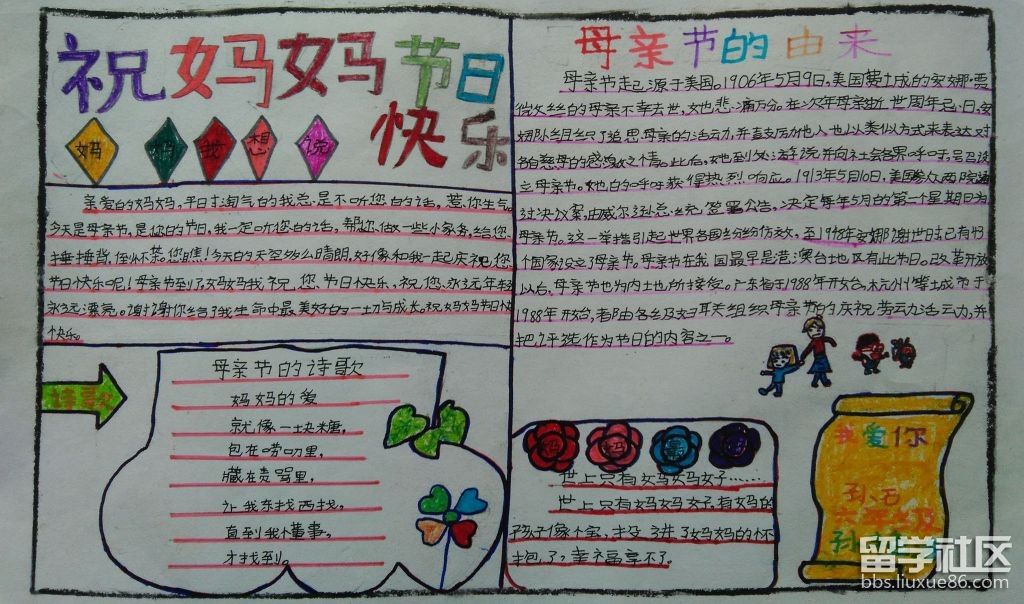 祝妈妈节日
快乐
妈 妈 我 想 说
亲爱的妈妈,平日士淘气的我总是不听您的话。惹您生气。
今天是母亲节,是您的节日,我一定听您的话。帮您做一些小家务,给您
捶捶背,在怀惹您焦!今天的天空多么晴朗,好像和我一起庆祝您
节日快乐呢!母亲节到了,妈妈我祝您节日快乐,祝您永远年轻
永远漂亮。谢谢你给了我生命中最美好的一切与成长。祝妈妈节日快
快乐。
诗歌
母亲节的诗歌
妈妈的爱
就像一块糖,
包在唠叨里,
藏在责骂里,
让我东找西找,
直到我懂事。
才找到。
母亲节的由来
母亲节起源于美国。1906年5月9日,美国费士成的安娜·贾
维丝的母亲不幸去世,她悲痛万分。在次年母亲逝世周年忌日,安
娜组织了追思母亲的活动,并鼓励他人也以类似方式来表达对
各自慈母的感激之情。此后,她到处游说并向社会各界呼吁,号召设
立母亲节。她的呼吁获得热烈响应。1913年5月10日,美国参众两院通
过决议案,由威尔逊总统签署公告,决定每年5月的第一个星期日为
母亲节。这一举措引起世界各国纷纷仿效,至1948年安娜谢世时,已有43
个国家设立了母亲节。母亲节在我国最早是港澳台地区有此节日。改革开放
以后,母亲节也为内土地所接受。广东省于1988年开始,杭州等城市于
1988年开始,都由各级妇联组织母亲节的庆祝劳动办活动,并
把评选作为节日的内容之一。
世上只有妈妈好……
世上只有妈妈好,有妈的
孩子像个宝,投进了妈妈的怀
抱了,幸福享不了。
我爱你
六年级
留学社区
bbs.liuxue86.com